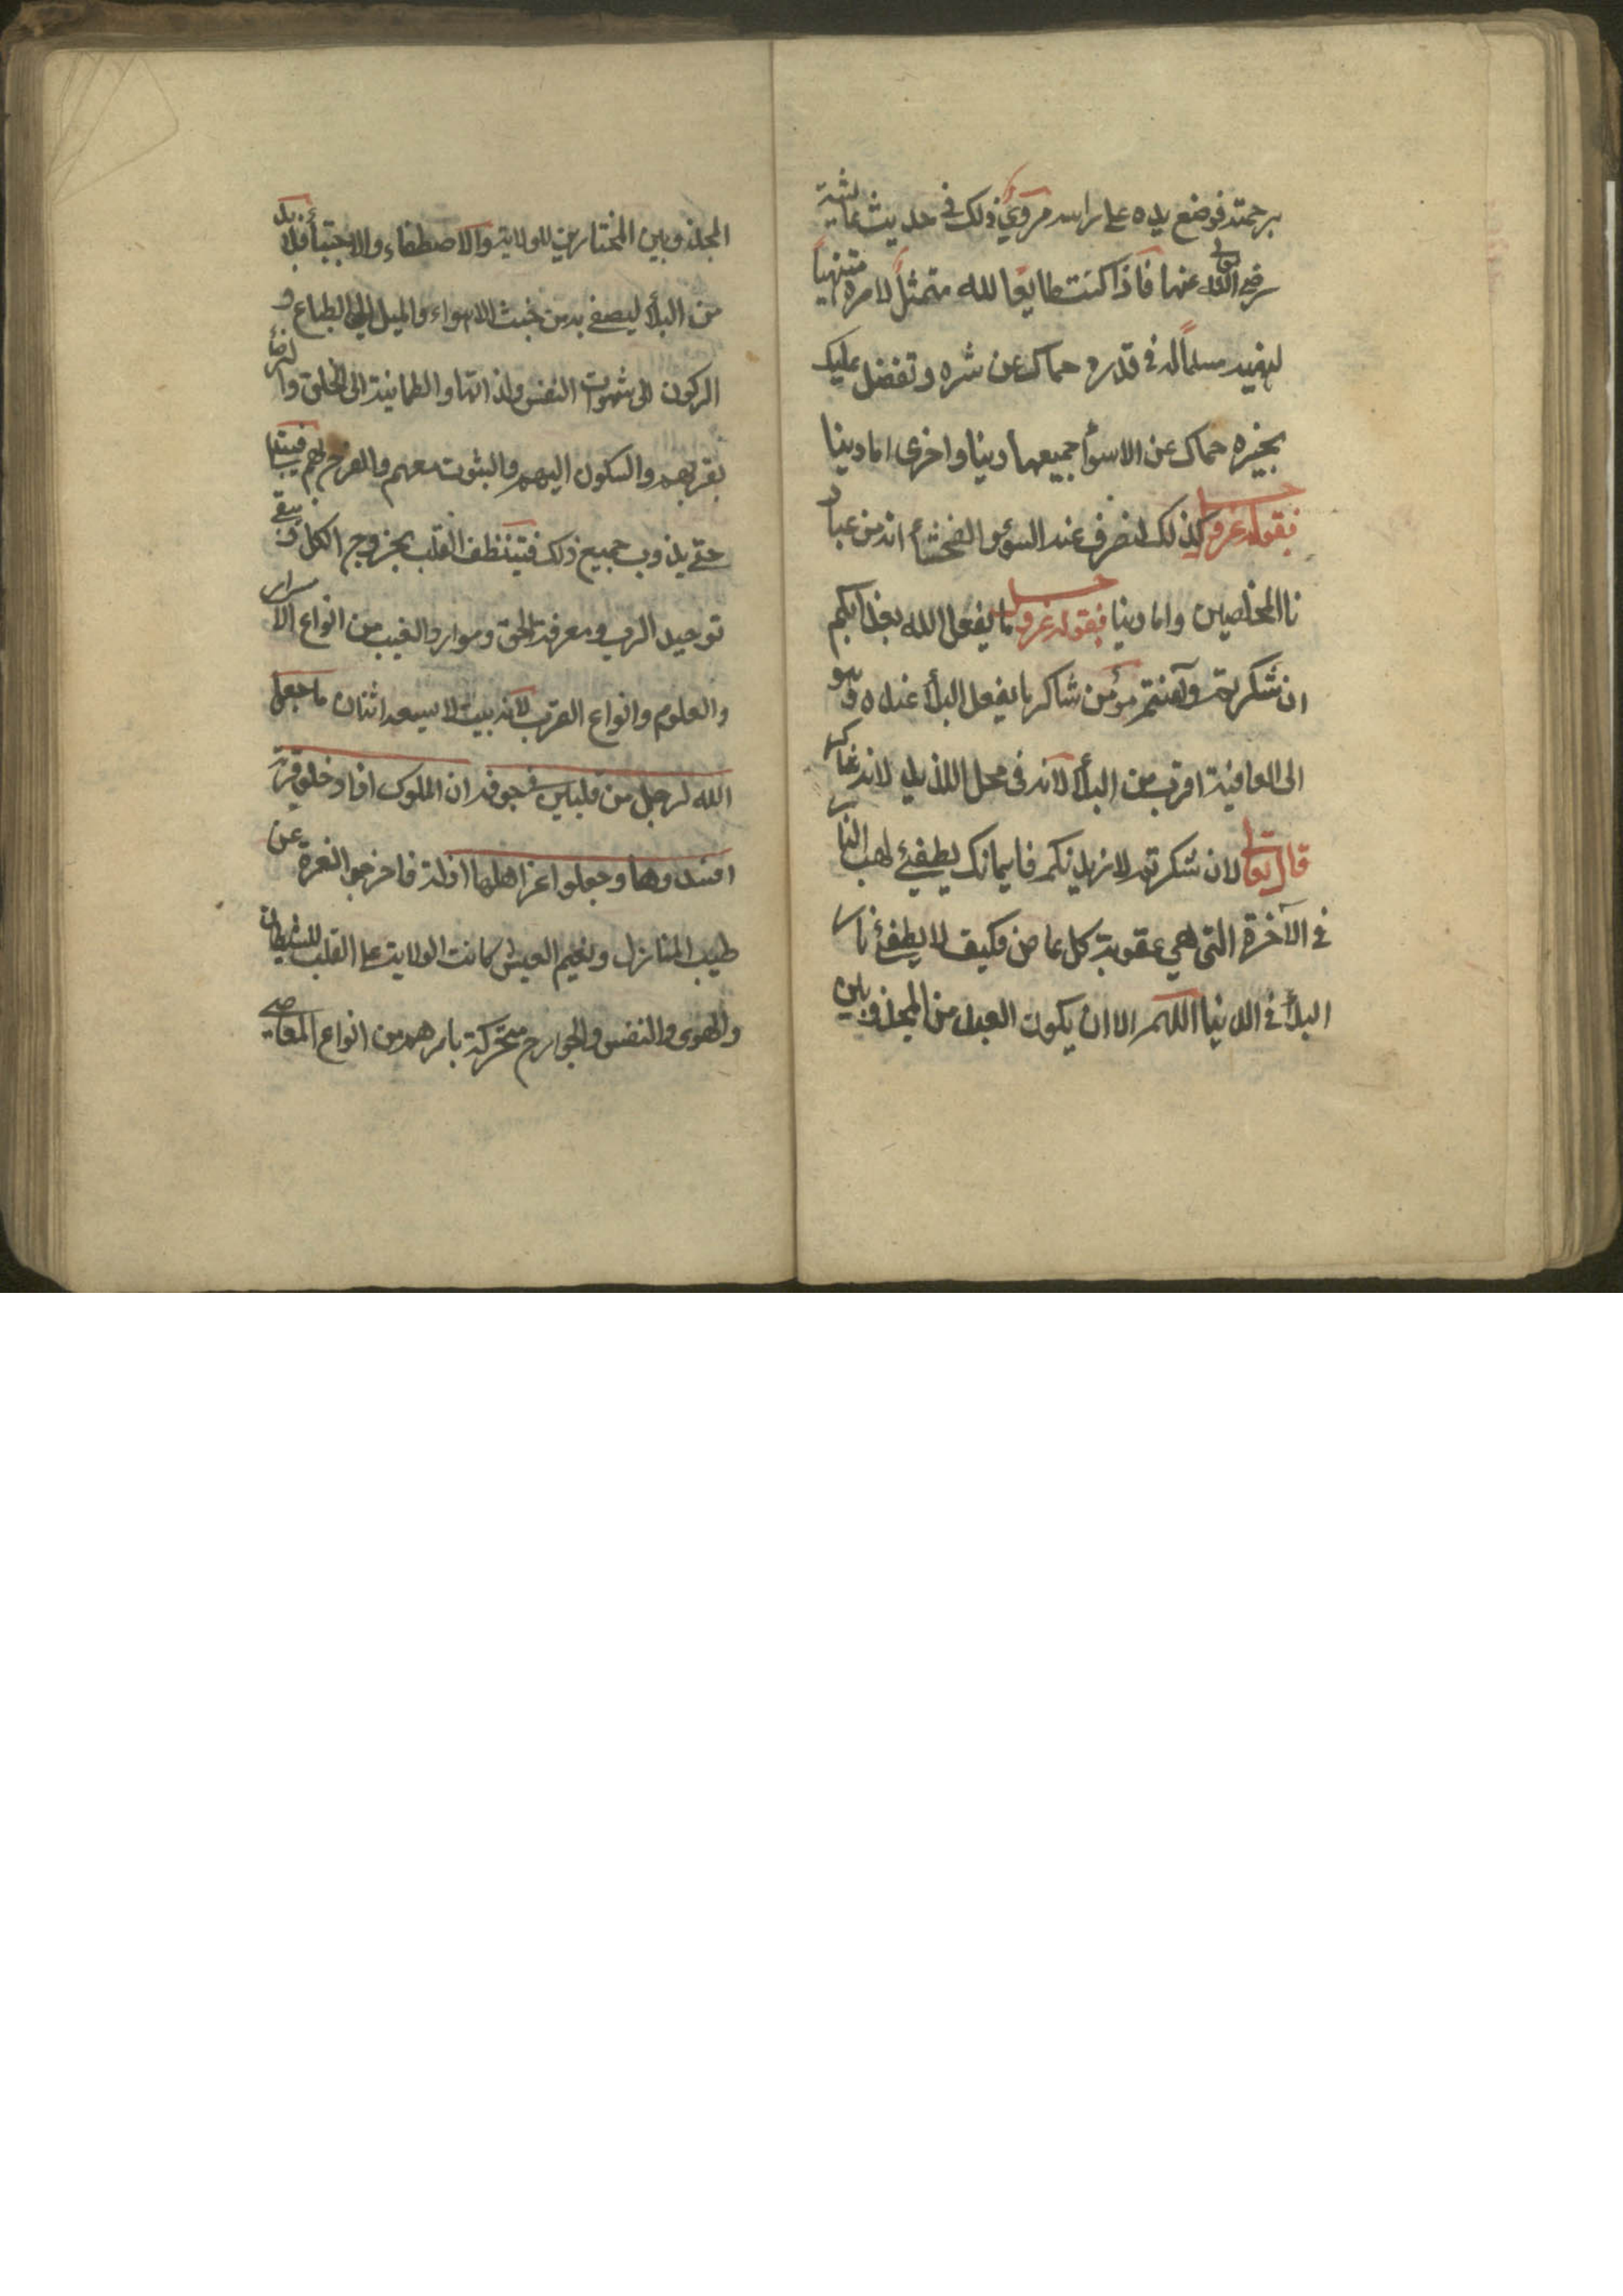 برحمته فوضع يده على راسه مروي ذلك في حديث عايشة
رضي الله تعالى عنها فاذا كنت طايعا لله متمثلا لامره منتهيا
لنهيه مسلما له في قدره حماك عن شره وتفضل عليك
بخيره حماك عن الاسوأ جميعها دينا واخرى اما دينا
فبقوله عز وجل كذلك لنصرف عنه السوء والفحشأ انه من عباد
نا المخلصين واما دينا فبقوله عز وجل ما يفعل الله بعذابكم
ان شكرتم وآمنتم مؤمن شاكر ما يفعل البلأ عنده وهو
الى العافية اقرب من البلأ لانه في محل اللذيد لانه شاكر
قال تعالى لان شكرتم لازيدنكم فايمانك يطفئ لهب النار
في الآخرة التى هي عقوبة كل عاص فكيف لا يطفئ نار
البلأ في الدنيا اللهم الا ان يكون العبد من المجذوبين
المجذوبين المختارين للولاية والاصطفاء والاجتبأ فلا بد
من البلأ ليصفى به من خبث الاهواء والميل الى الطباع و
الركون الى شهوات النفس ولذاتها والطمانينة الى الخلق والرضأ
بقربهم والسكون اليهم والثبوت معهم والفرح بهم فيبتلى
حتى يذوب جميع ذلك فيتنظف القلب بخروج الكل فيبقى
توحيد الرب ومعرفة الحق وموارد الغيب من انواع الاسرار
والعلوم وانواع القرب لانه بيت لا يسعه اثنان ما جعل
الله لرجل من قلبين في جوفه ان الملوك اذا دخلو قرية
افسدوها وجعلوا اعزة اهلها اذلة فاخرجو العزة عن
طيب المنازل ونعيم العيش كانت الولاية على القلب للشيطان
والهوى والنفس والجوارح متحركة بامرهم من انواع المعاصي